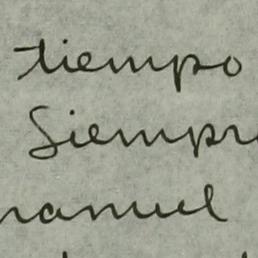 tiempo
Siempr
anuel